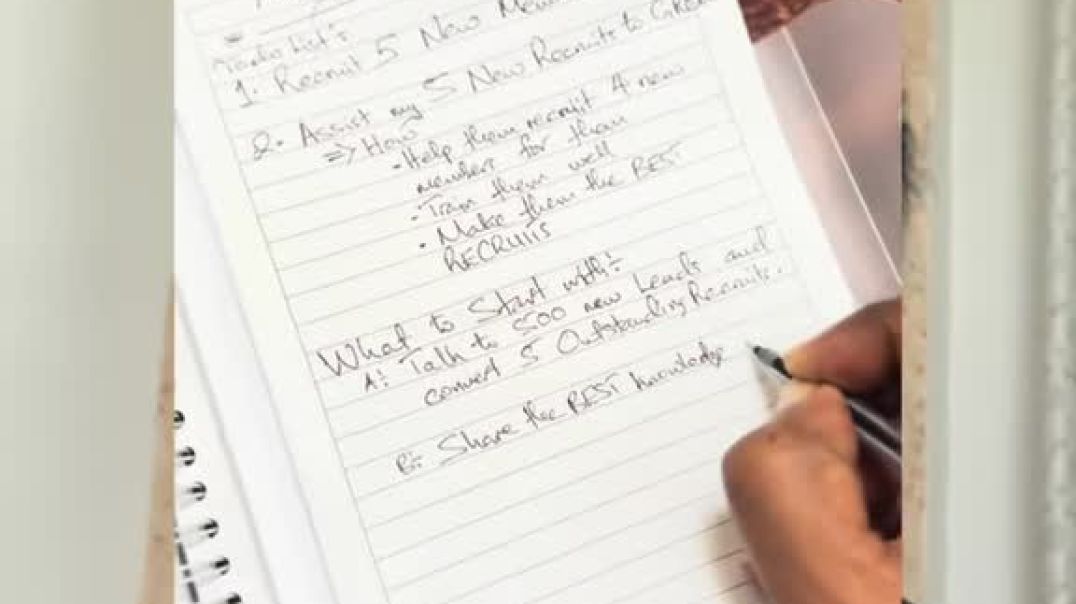 Todo List's
1. Recruit 5 New
2. Assist my 5 New Recruits to
=> How
- Help them recruit 4 new
members for them
- Train them well
- Make them the BEST
RECRUITS
What to Start with:
A: Talk to 500 new Leads and
convert 5 Outstanding Recruits.
B: Share the BEST knowledge